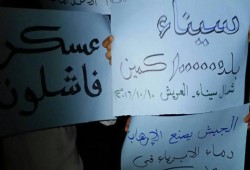 سيناء
بلد ١٠٠٠٠٠٠ كمين
شمال سيناء. العريش ٢٠١٦/١٠/١٠
عسكر
فاشلون
الجيش يصنع الإرهاب
دماء الأبرياء في